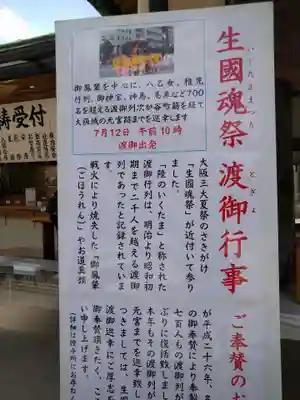 生國魂祭 渡御行事
いくたままつり とぎょ
御鳳輦を中心に、八乙女、稚児
行列、御神宝、神馬、馬車など700
名を超える渡御列次が谷町筋を経て
大阪城の元宮跡まで巡幸します
7月12日 午前10時
渡御出発
大阪三大夏祭のさきがけ
「生國魂祭」が近付いて参り
ました。
「陸のいくたま」と称された
渡御行列は、明治より昭和初
期まで二千人を越える渡御
列であったと記録されていま
戦火により焼失した「御鳳輦
(ごほうれん)」やお道具類
が平成二十六年、
の御奉賛により奉製
七百人もの渡御列が
ぶりに復活致しまし
本年もその渡御列が
元宮までを巡幸致し
つきましては、生國
渡御巡幸にご厚志を
御奉賛頂きたく、ご
い申し上げます。
ご奉賛のお
祷受付